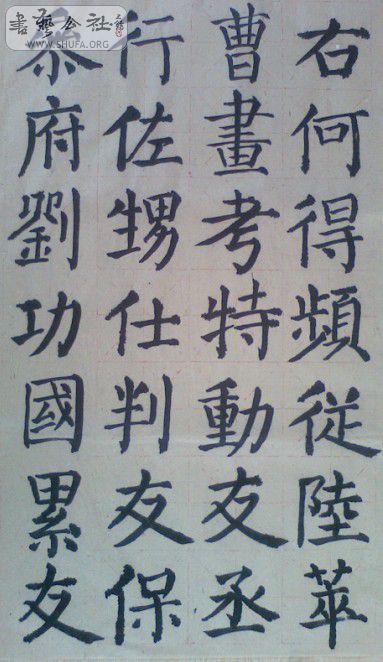 右何得頻從陸萃
曹畫考特動友丞
行佐甥仕判友保
府劉功國累友
書藝公社
WWW.SHUFA.ORG